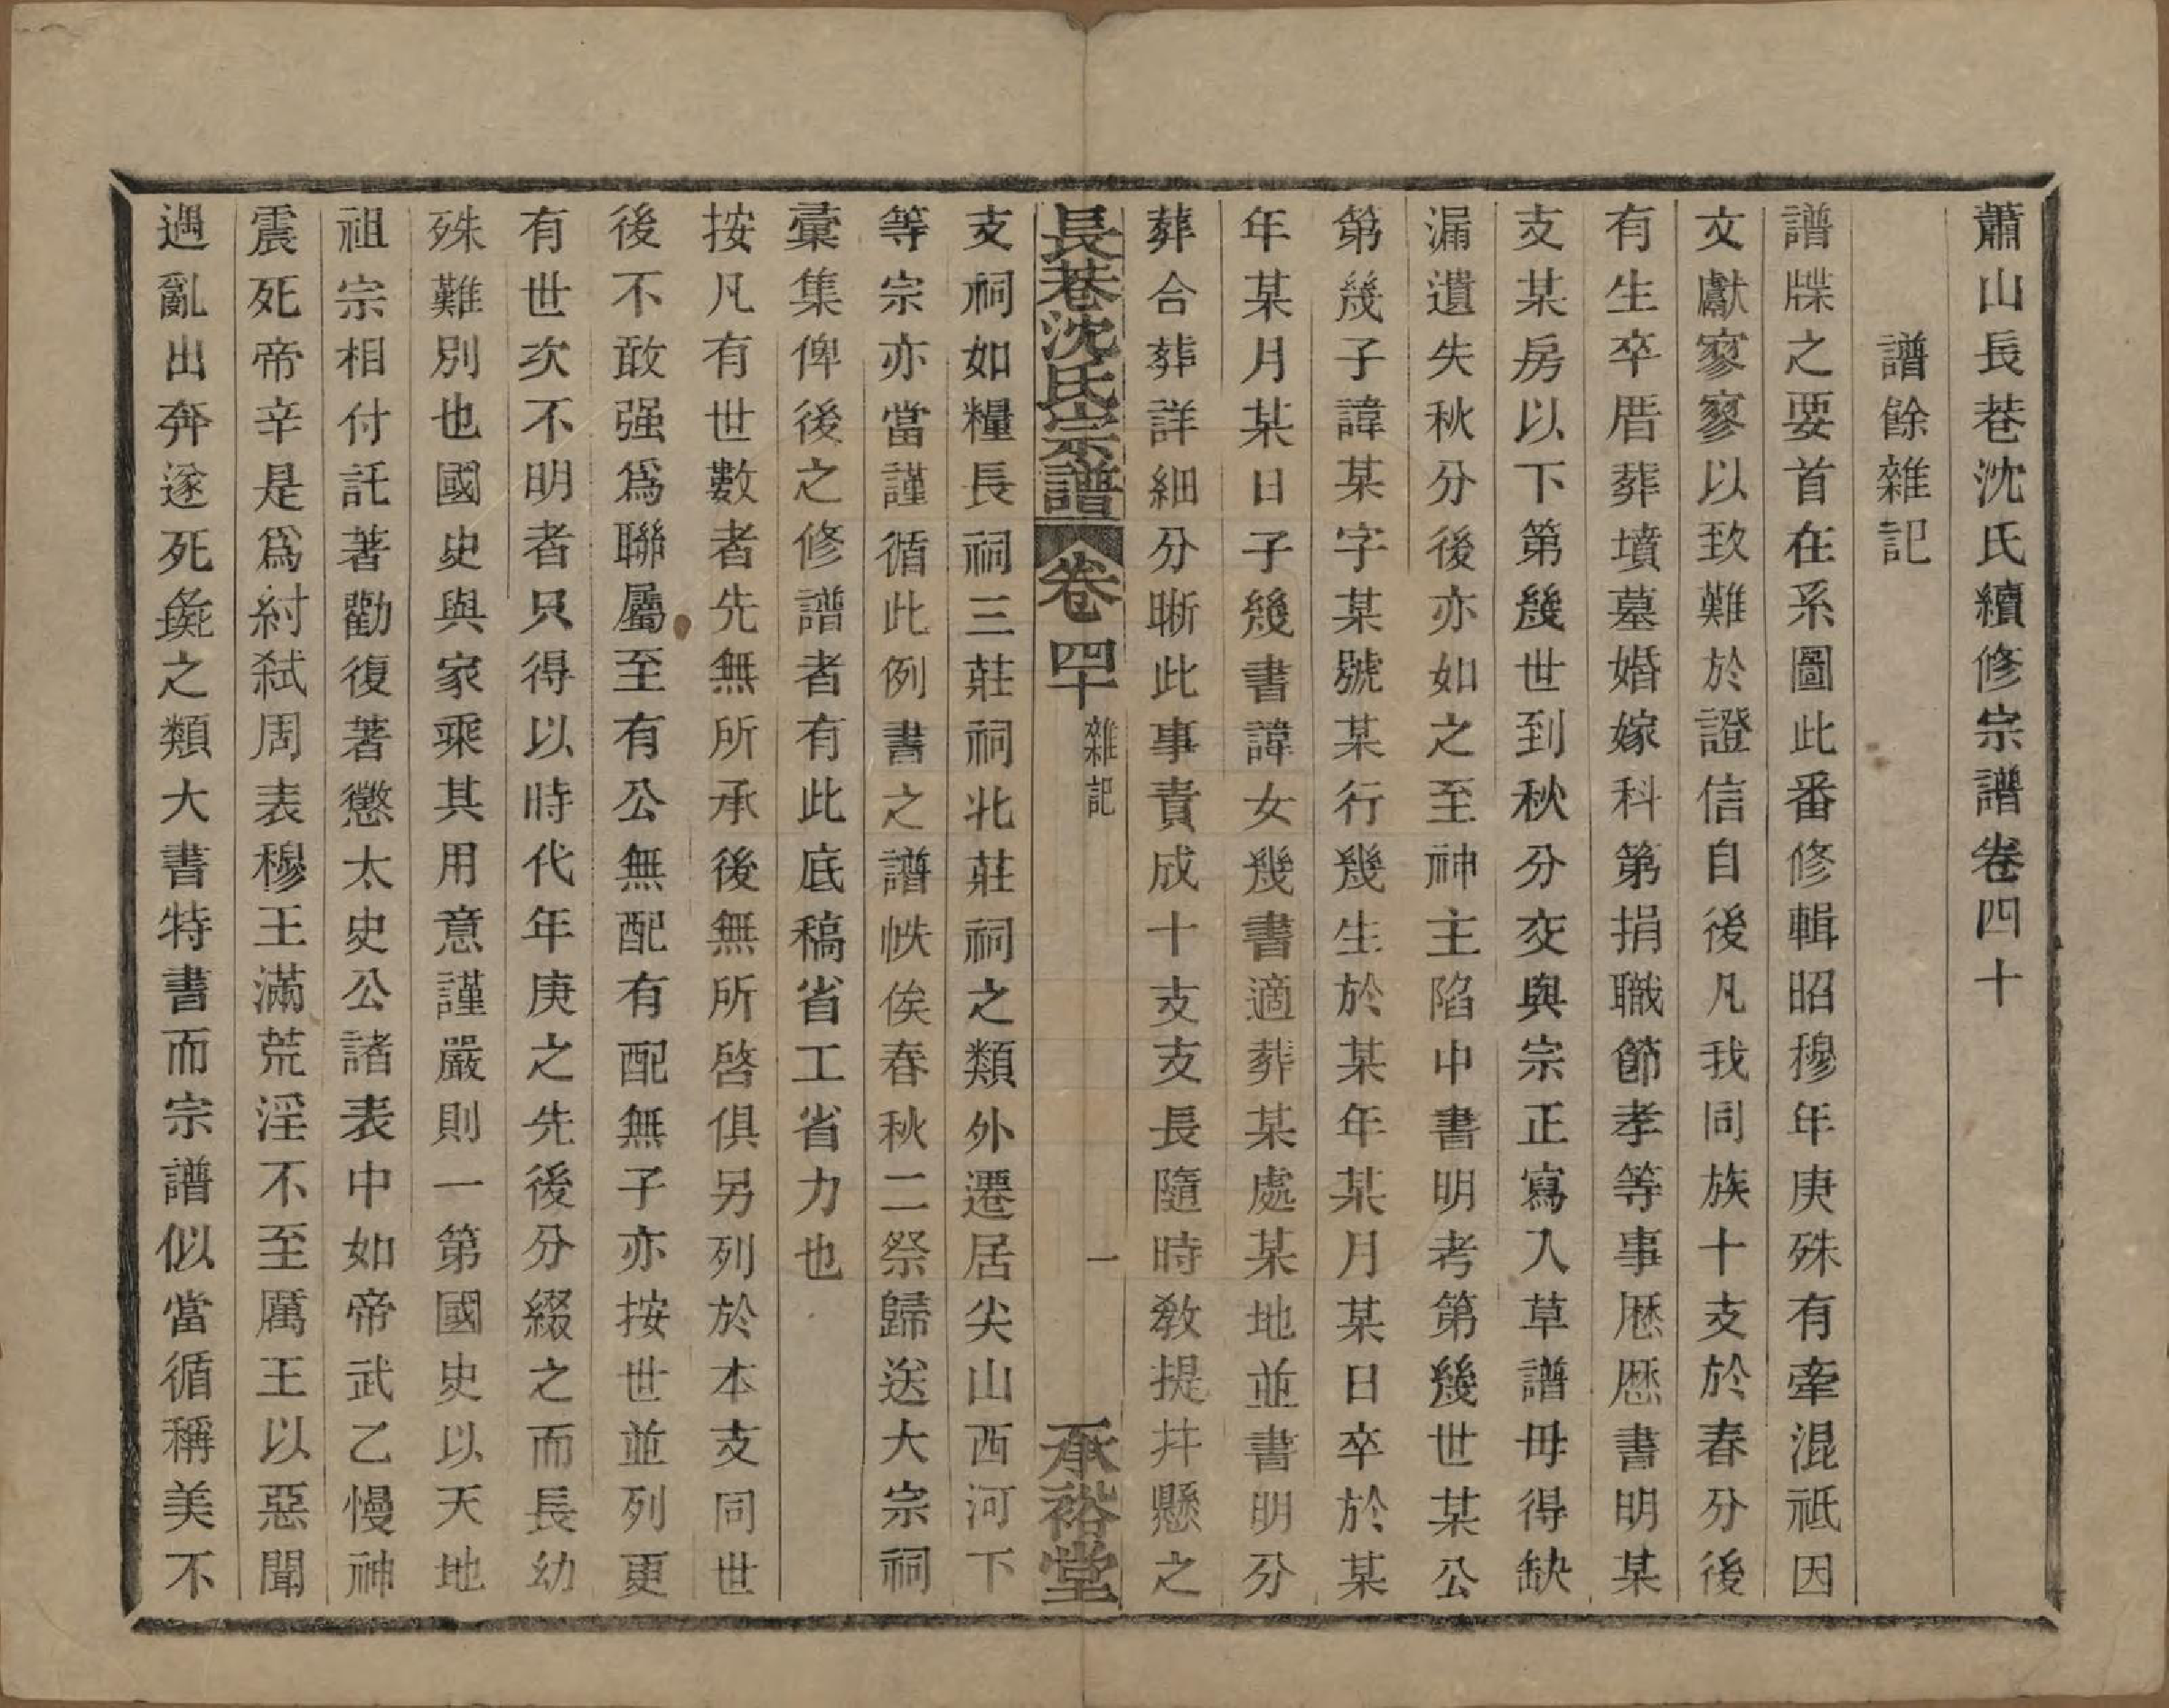 蕭山長巷沈氏續修宗譜卷四十
譜餘雜記
譜牒之要首在系圖此番修輯昭穆年庚殊有牽混祇因
文獻寥寥以致難於證信自後凡我同族十支於春分後
有生卒厝葬墳墓婚嫁科第捐職節孝等事歷歷書明某
支某房以下第幾世到秋分交與宗正寫入草譜毋得缺
漏遺失秋分後亦如之至神主陷中書明考第幾世某公
第幾子諱某字某號某行幾生於某年某月某日卒於某
年某月某日子幾書諱女幾書適葬某處某地並書明分
葬合葬詳細分晰此事責成十支支長隨時教提井懸之
長巷沈氏宗譜 卷四十 雜記 一 承裕堂
支祠如糧長祠三莊祠北莊祠之類外遷居尖山西河下
等宗亦當謹循此例書之譜帙俟春秋二祭歸送大宗祠
彙集俾後之修譜者有此底稿省工省力也
按凡有世數者先無所承後無所啓俱另列於本支同世
後不敢强爲聯屬至有公無配有配無子亦按世並列更
有世次不明者只得以時代年庚之先後分綴之而長幼
殊難別也國史與家乘其用意謹嚴則一第國史以天地
祖宗相付託著勸復著懲太史公諸表中如帝武乙慢神
震死帝辛是爲紂弑周表穆王滿荒淫不至厲王以惡聞
遇亂出奔遂死彘之類大書特書而宗譜似當循稱美不